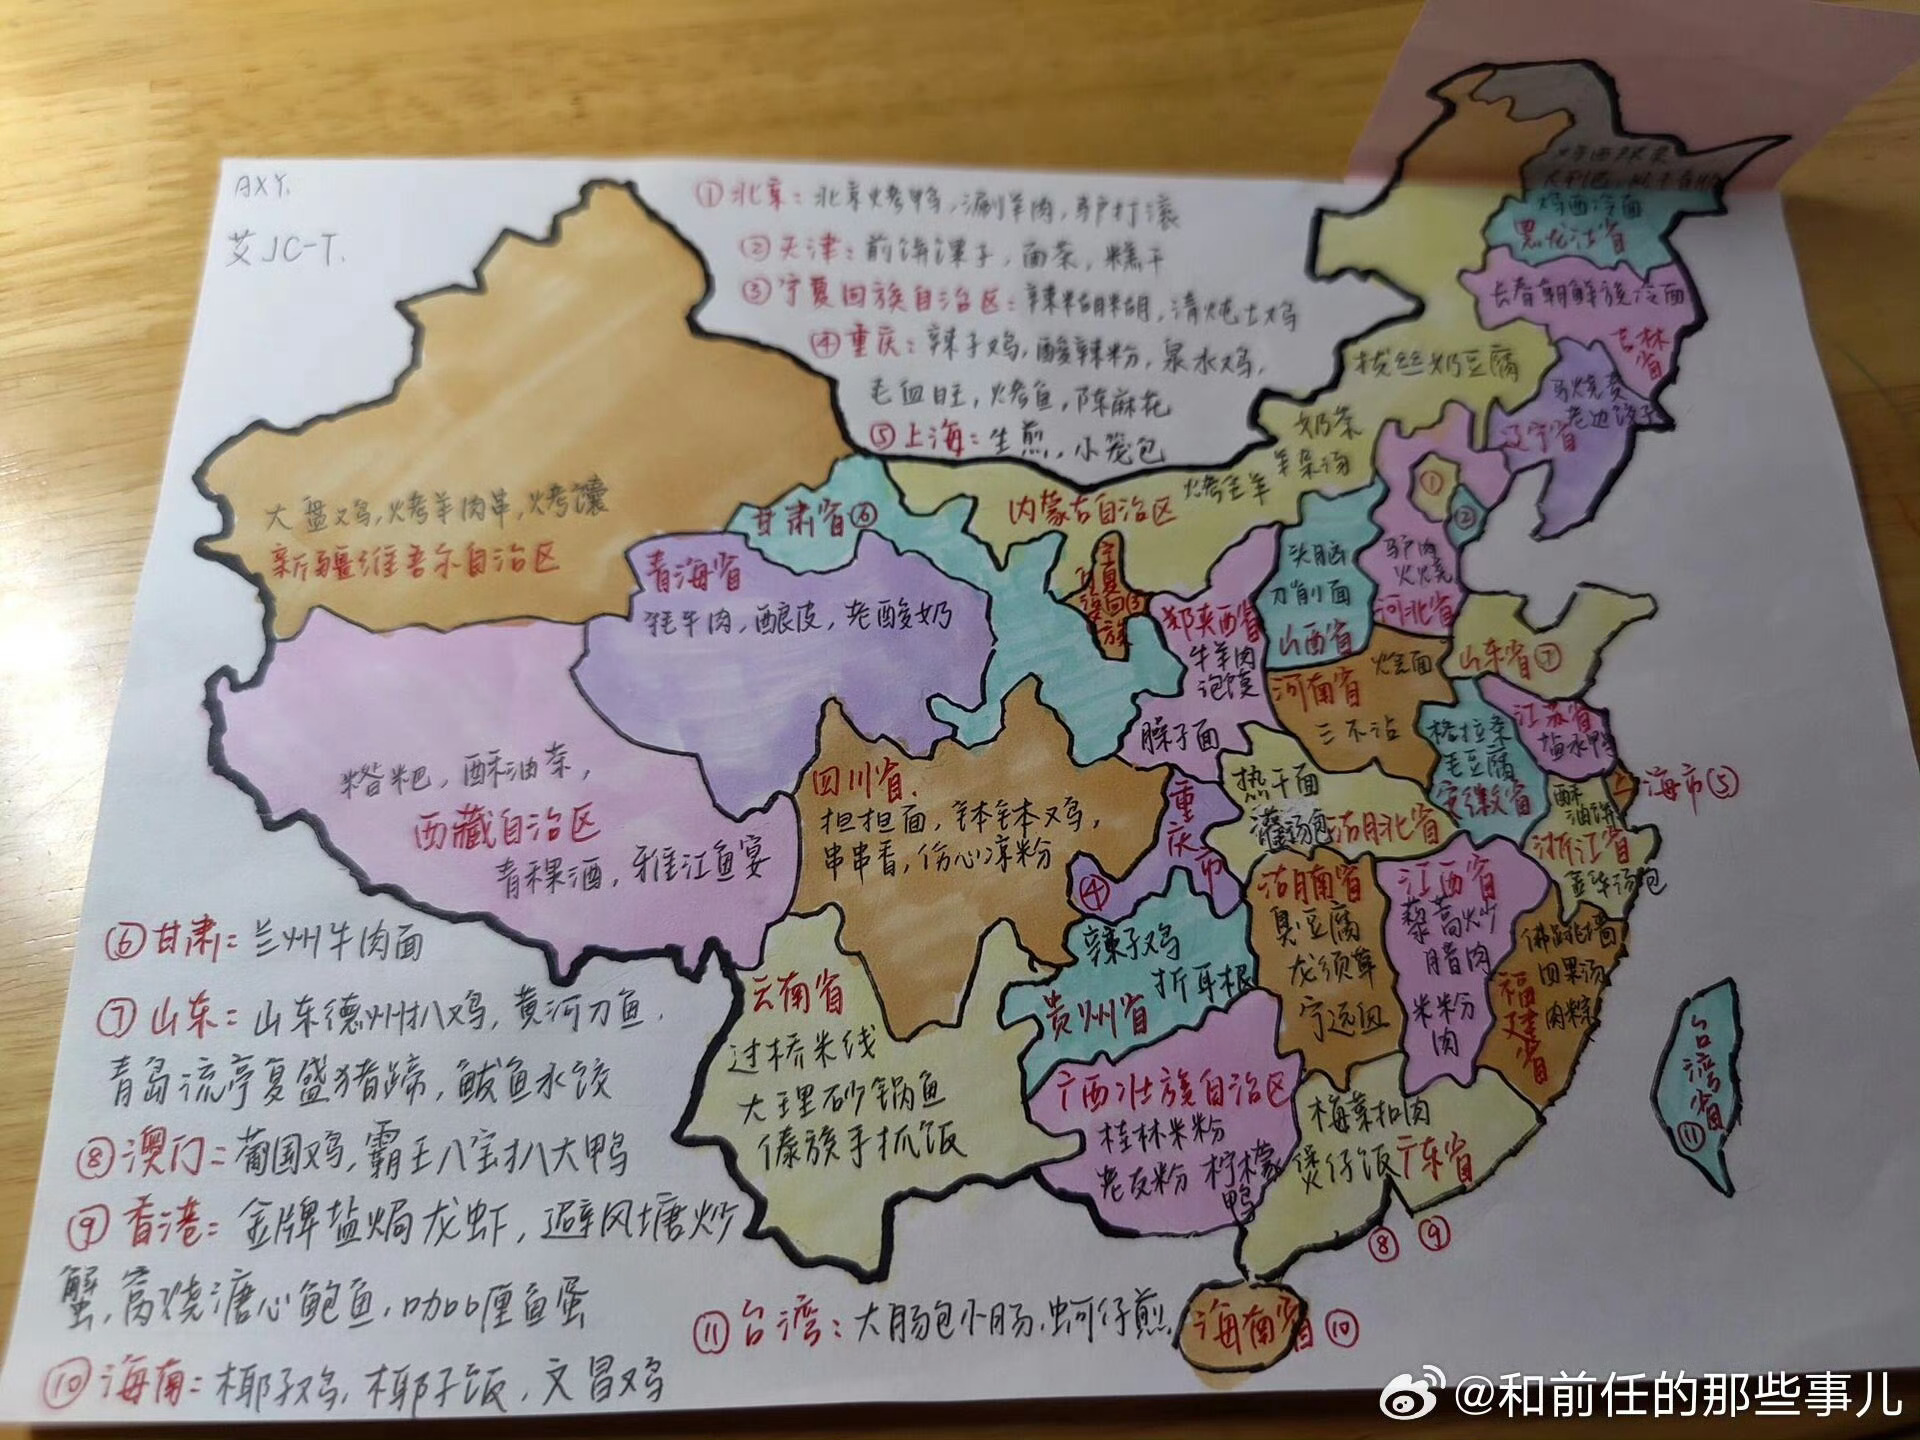 AXY.
艾JC-T.
①北京：北京烤鸭，涮羊肉，驴打滚
②天津：煎饼馃子，面茶，糕干
③宁夏回族自治区：辣糊糊，清炖土鸡
④重庆：辣子鸡，酸辣粉，泉水鸡，
毛血旺，烤鱼，陈麻花
⑤上海：生煎，小笼包
鸡西冷面
黑龙江省
长春朝鲜族冷面
吉林省
马烧麦
老边饺子
辽宁省
拔丝奶豆腐
奶茶
羊杂汤
烤全羊
内蒙古自治区
①
②
驴肉
火烧
河北省
头脑
刀削面
山西省
大盘鸡，烤羊肉串，烤馕
新疆维吾尔自治区
甘肃省⑥
青海省
牦牛肉，酿皮，老酸奶
宁夏回族
③
陕西省
牛羊肉
泡馍
臊子面
烩面
河南省
三不沾
山东省⑦
江苏省
盐水鸭
格拉条
毛豆腐
安徽省
上海市⑤
酥油饼
浙江省
金华汤包
糌粑，酥油茶，
西藏自治区
青稞酒，雅江鱼宴
四川省.
担担面，钵钵鸡，
串串香，伤心凉粉
重庆市
④
热干面
灌汤包
湖北省
湖南省
臭豆腐
龙须草
宁远血
江西省
藜蒿炒
腊肉
米粉
肉
佛跳墙
四果汤
肉粽
福建省
辣子鸡
折耳根
贵州省
云南省
过桥米线
大理砂锅鱼
傣族手抓饭
广西壮族自治区
桂林米粉
老友粉 柠檬
鸭
梅菜扣肉
煲仔饭
广东省
⑧ ⑨
台湾省
⑪
海南省⑩
⑥甘肃：兰州牛肉面
⑦山东：山东德州扒鸡，黄河刀鱼，
青岛流亭夏盛猪蹄，鲅鱼水饺
⑧澳门：葡国鸡，霸王八宝扒大鸭
⑨香港：金牌盐焗龙虾，避风塘炒
蟹，窝烧溏心鲍鱼，咖喱鱼蛋
⑩海南：椰子鸡，椰子饭，文昌鸡
⑪台湾：大肠包小肠，蚵仔煎
@和前任的那些事儿